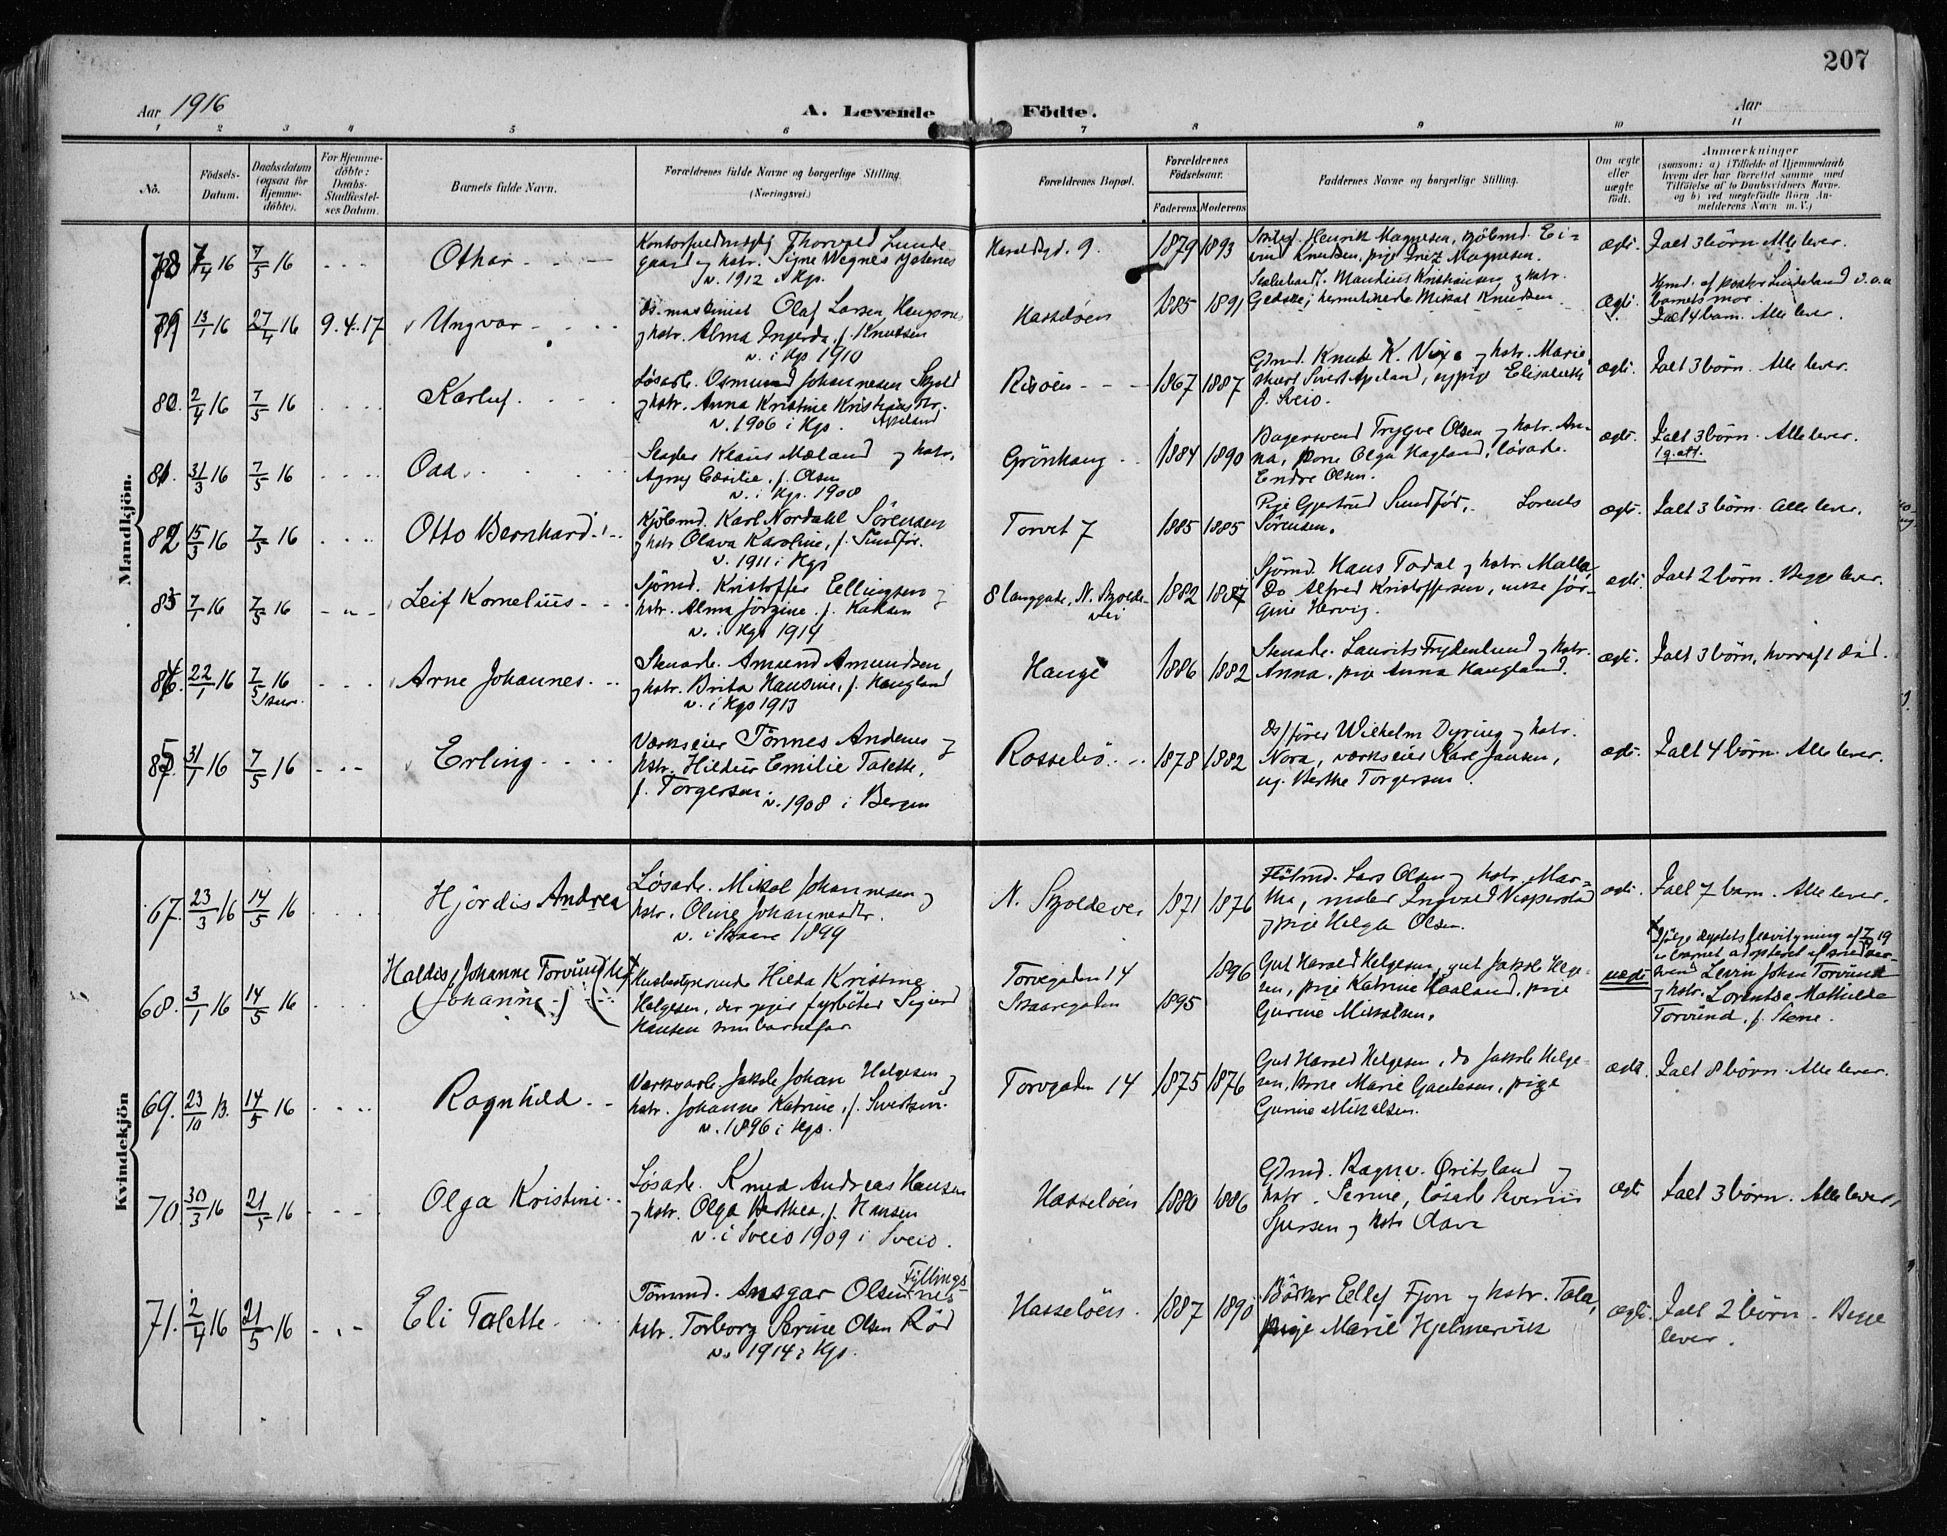 207
Aar 1916
A. Levende Födte.
Aar
1 2 3 4 5 6 7 8 9 10 11
No.
Födsels-Datum.
Daabsdatum (ogsaa for Hjemme-döbte).
For Hjemme-döbte: Daabs-Stadfæstel-ses Datum.
Barnets fulde Navn.
Forældrenes fulde Navne og borgerlige Stilling. (Næringsvei.)
Forældrenes Bopæl.
Forældrenes Födselsaar.
Faderens. Moderens
Faddernes Navne og borgerlige Stilling.
Om ægte eller uægte födt.
Anmærkninger
(saasom: a) i Tilfælde af Hjemmedaab
hvem der har forrettet samme, med
Tilföielse af to Daabsvidners Navne.
og b) ved uægtefödte Börn An-
melderens Navn m. V.)
Mandkjön.
78 7/4 16 7/5 16
Othar
Kontorfuldmægtig Thorvald Lunde-
gaard og hstr. Signe
v. 1912 i Hgs.
Haraldsgd. 9.
1879 1893
Henrik Magnesen, Ei-
Knudsen, pige Magnesen.
ægte.
Ialt 3 börn. Alle lever.
79 13/1 16 27/4 16 9.4.17
Ungvar
Ds. maskinist Olaf Larsen
og hstr. Alma Ingerda, f. Knutsen
v. i Hgs 1910
Hasseløen
1885 1891
Kristiansen og hstr.
Mikal Knudsen
ægte.
barnets mor.
Ialt 4 barn. Alle lever.
80. 2/4 16 7/5 16
Karluf
Løsarb. Osmund Johannesen
og hstr. Anna Kristine
v. 1906 i Hgs. Apeland
Risøen
1867 1887
Gmd. Knut K. og hstr. Marie
Sivert Apeland, pige Elisabeth
f. Sveio.
ægte.
Ialt 3 börn. Alle lever.
81. 31/3 16 7/5 16
Odd
Klaus Mæland og hstr.
Agnes Cæcilie, f. Olsen
v. i Hgs. 1908
Grönhaug
1884 1890
Bagersvend Trygve Olsen og hstr. An-
na, Olga Hagland, løsarb.
Endre Olsen.
ægte.
Ialt 3 börn. Alle lever.
1 g. att.
82 15/3 16 7/5 16
Otto Bernhard
Kjöbmd. Karl Nordahl Sörensen
og hstr Olava Karoline, f. Sundför.
v. 1911 i Hgs
Torvet 7
1885 1885
Pige Gjertrud Sundför, Lorents
Sörensen.
ægte.
Ialt 3 börn. Alle lever.
83 7/1 16 7/5 16
Leif Kornelius
Sjömd. Kristoffer Eellingsen og
hstr. Alma Jörgine, f.
v. i Hgs 1914
8 langgade, N. Skolde-
vei
1882 1887
Sjömd. Hans Todal og hstr. Malla,
Do Alfred Kristoffersen, enke Jör-
gine Hervig.
ægte.
Ialt 2 börn. Begge lever.
84. 22/1 16 7/5 16
Arne Johannes
Stenarb. Amund Amundsen
og hstr. Brita Hansine, f. Haugland
v. i Hgs 1913
Hauge
1886 1882
Stenarb. Laurits Frydenlund og hstr.
Anna, pige Anna Haugland.
ægte.
Ialt 3 börn, hvoraf 1 död.
85. 31/1 16 7/5 16
Erling
Værkseier Tönnes Andenes og
hstr. Hildur Emilie Talette,
f. Torgersen.
v. 1908 i Bergen
Rossebö
1878 1882
Ds/förer Wilhelm Dyring og hstr.
Nora, værkseier Karl Jansen,
ug. Berthe Torgersen.
ægte.
Ialt 4 börn. Alle lever.
Kvindekjön
67. 23/3 16 14/5 16
Hjördis Andrea
Løsarb. Mikal Johannesen og
hstr. Oline Johannesdtr.
v. i Skaare 1899
N. Skoldevei
1871 1876
Lars Olsen og hstr. Mar-
tha, maler Ingvald
og pige Helga Olsen.
ægte.
Ialt 7 barn. Alle lever.
68. 3/1 16 14/5 16
Haldis Johanne Torvund
(Johanne)
Husbestyrerinde Hilda Kristine
Helgesen, der opgir fyrböter Sigurd
Hansen som barnefar
Torvegaden 14
Skaaregaden
1895 1896
Gut Harald Helgesen, gut Jakob Helge-
sen, pige Katrine Haaland, pige
Gurine Mikalsen.
uægte
Levin Johan Torvund
og hstr. Lorentse Mathilde
Torvund, f. Stene.
69. 23/10 13. 14/5 16
Ragnhild
Værksarb. Jakob Johan Helgesen og
hstr. Johanne Katrine, f. Sivertsen.
v. 1896 i Hgs.
Torvgaden 14
1875 1876
Gut Harald Helgesen, do Jakob Helge-
sen, Marie pige
Gurine Mikalsen.
ægte
Ialt 8 börn. Alle lever.
70. 30/3 16 21/5 16
Olga Kristine
Løsarb. Knud Andreas Hansen
og hstr. Olga Berthea, f. Hansen
v. i Sveio 1909 i Sveio.
Hasseløen
1880 1886
Gmd. Ragnv. Øritsland og
hstr. Serine, løsarb Severin
Sjursen og hstr Olava
ægte
Ialt 3 börn. Alle lever,
71. 2/4 16 21/5 16
Eli Talette
Tömmd. Ansgar Olsen Fyllings-
nes
hstr. Torborg Serine Olsen Röd
v. 1914 i Hgs.
Hasseløen.
1887 1890
Bödker Ellef Fjon og hstr. Tala,
pige Marie Hjelmervik
ægte.
Ialt 2 börn. Begge
lever.